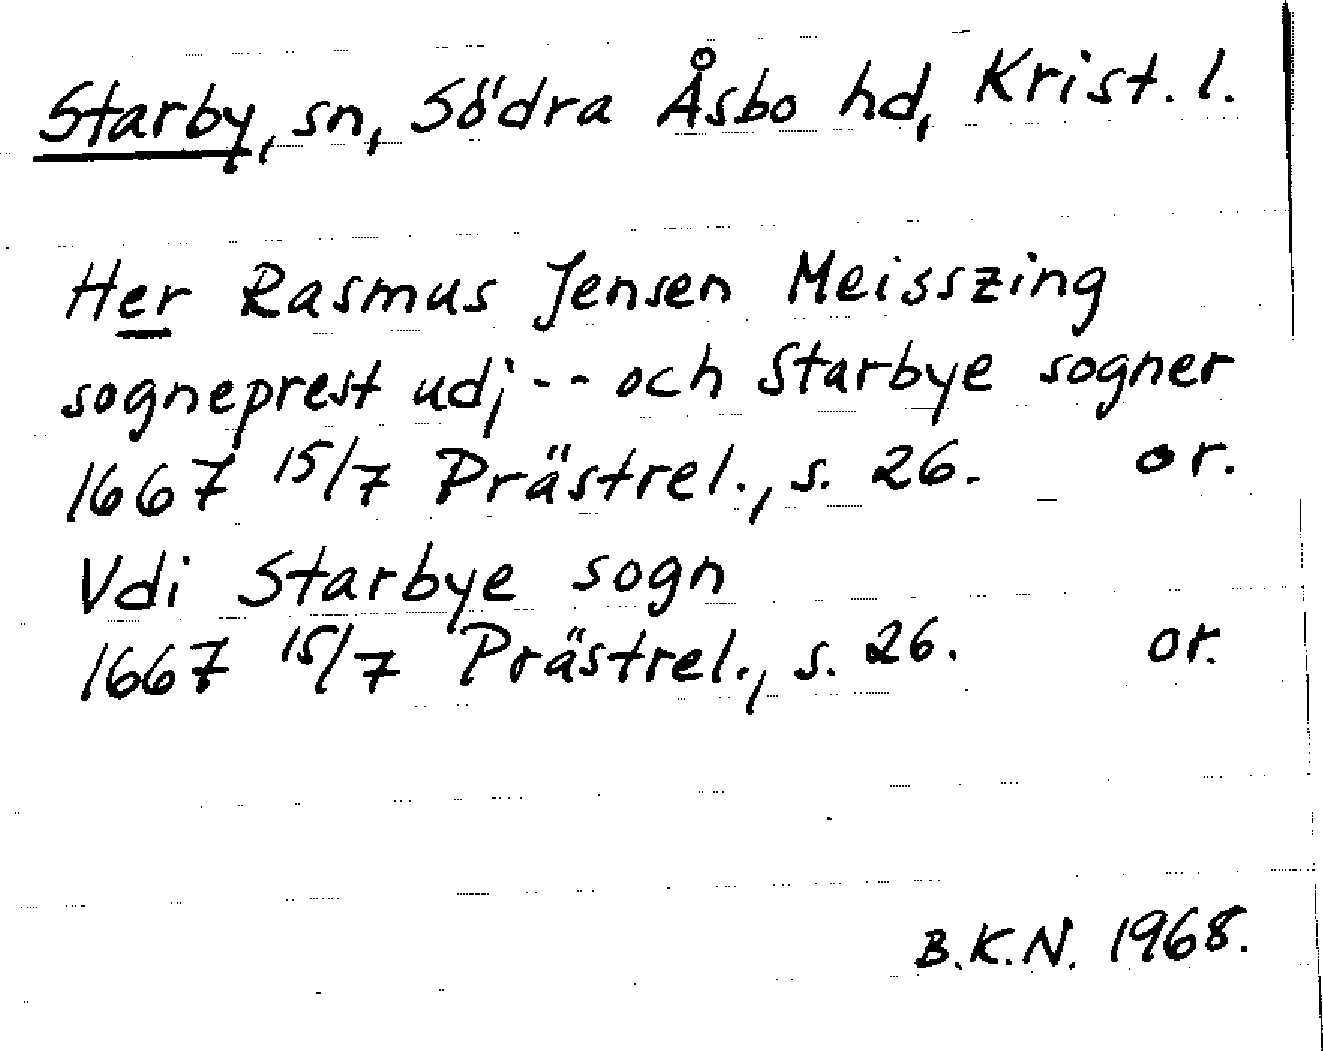 Starby, sn, Södra Åsbo hd, Krist. l.
Her Rasmus Jensen Meisszing
sogneprest udj -- och Starbye sogner
1667 15/7 Prästrel., s. 26. or.
Vdi Starbye sogn
1667 15/7 Prästrel., s. 26. or.
B.K.N. 1968.